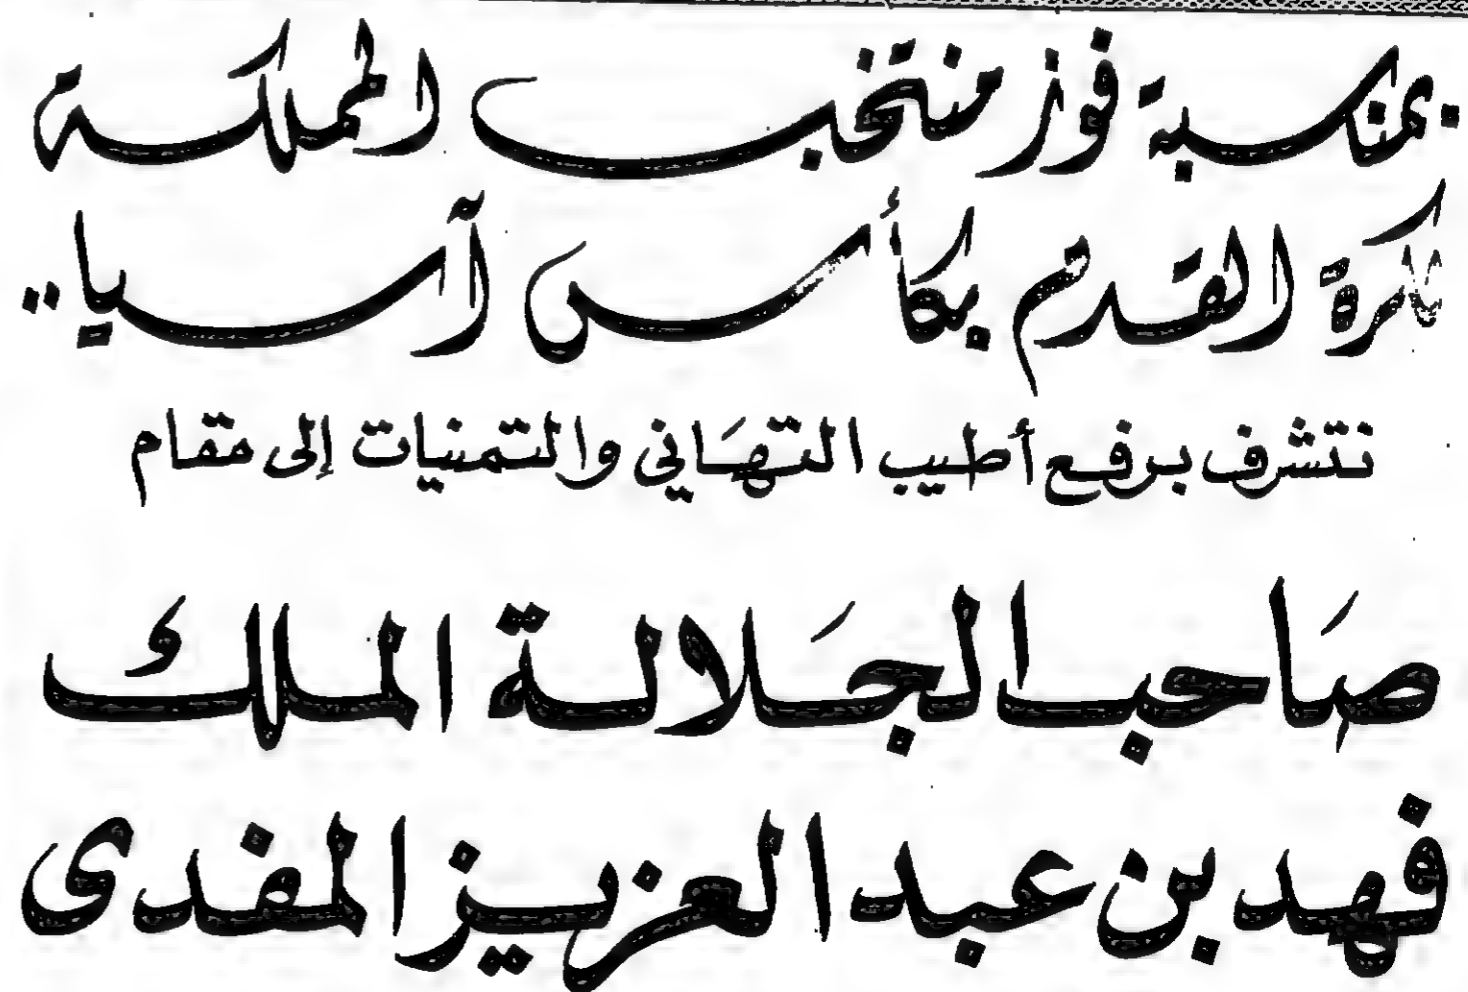 بمناسبة فوز منتخب المملكة
لكرة القدم بكأس آسيا..
نتشرف برفع أطيب التهَاني والتمنيات إلى مقام
صَاحب الجَلالة الملك
فهد بن عبد العزيز المفدى